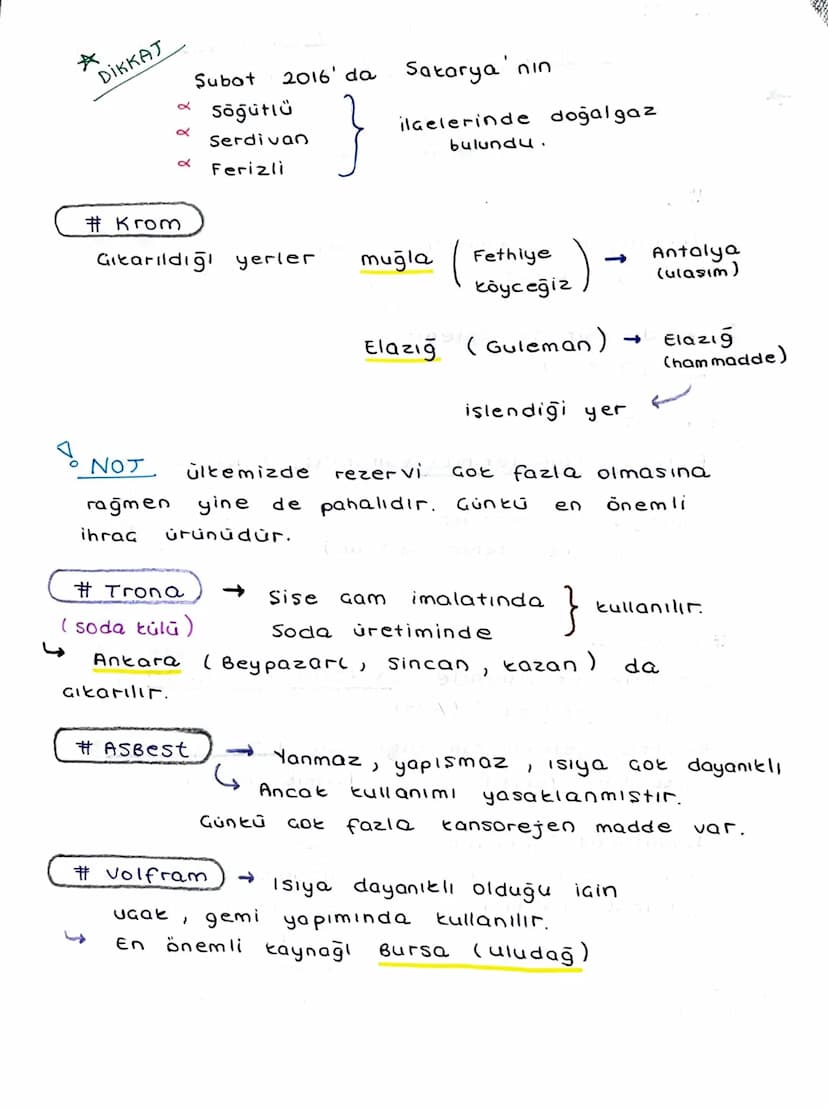 DİKKAT
Şubat 2016'da Sakarya'nın
Söğütlü
Serdivan
Ferizli
ilçelerinde doğalgaz
bulundu.
# Krom
Çıkarıldığı yerler muğla (Fethiye köyceğiz) → Antalya (ulaşım)
Elazığ (Guleman) → Elazığ (hammadde)
işlendiği yer
NOT ülkemizde rezervi çok fazla olmasına
rağmen yine de pahalıdır. Çünkü en önemli
ihraç ürünüdür.
# Trona → Şişe cam imalatında
(soda külü) Soda üretiminde } kullanılır.
Ankara (Beypazarı, Sincan, kazan) da
çıkarılır.
# Asbest → Yanmaz, yapışmaz, ısıya çok dayanıklı
Ancak kullanımı yasaklanmıştır.
Çünkü çok fazla kansorejen madde var.
# Volfram → Isıya dayanıklı olduğu için
uçak, gemi yapımında kullanılır.
En önemli kaynağı Bursa (uludağ)